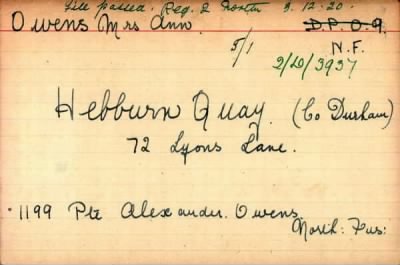 File passed. Reg. 2 3.12.20.
Owens Mrs Ann. D.P.O.9.
5/1 N.F.
2/20/3937
Hebburn Quay. (Co Durham)
72 Lyons Lane.
1199 Pte Alexander. Owens
North: Fus: